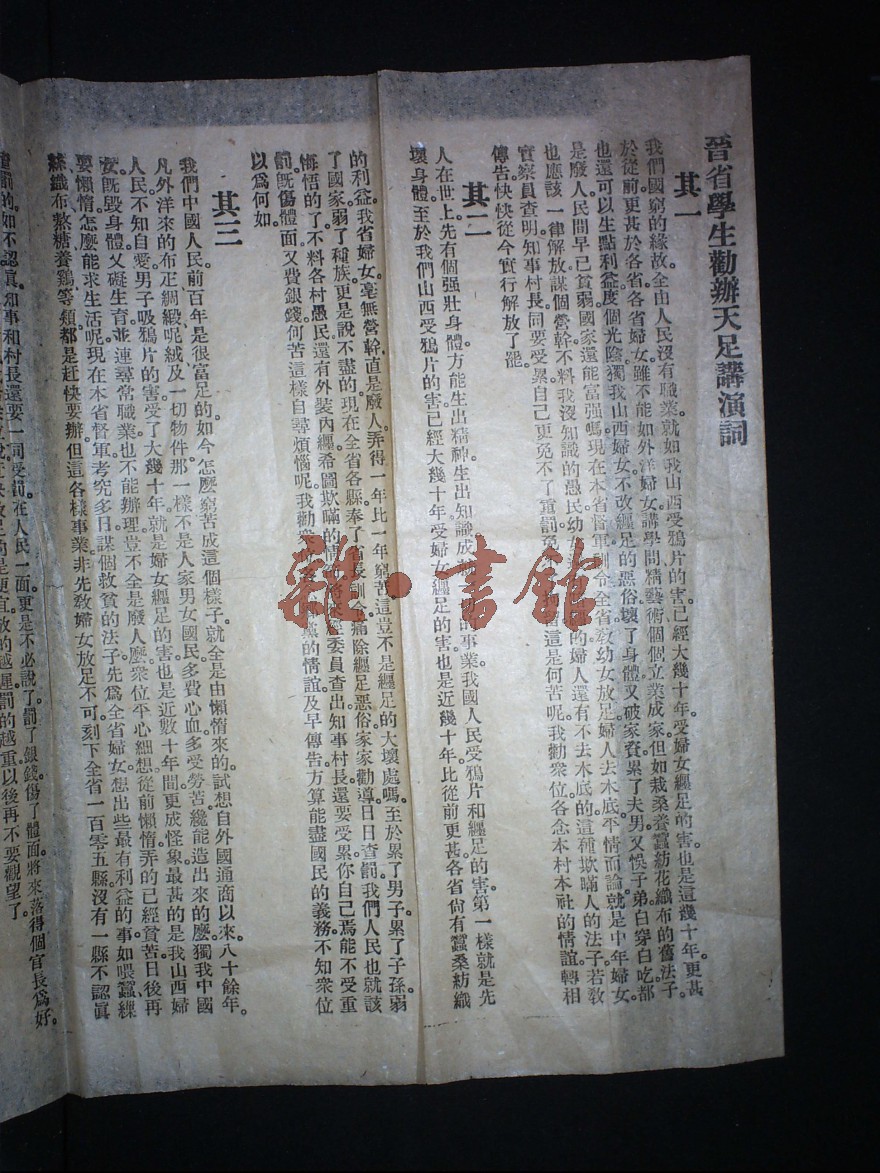 晉省學生勸辦天足講演詞
其一
我們國窮的緣故全由人民沒有職業。就如我山西受鴉片的害已經大幾十年。受婦女纏足的害也是這幾十年。更甚
於從前。更甚於各省。各省婦女雖不能如外洋婦女講學問精藝術個個立業成家。但如栽桑養蠶紡花織布的舊法子。
也還可以生點利益度個光陰。獨我山西婦女不改纏足的惡俗壞了身體又破家資累了夫男又悞子弟白穿白吃都
是廢人。民間早已貧弱國家還能富强嗎。現在本省督軍訓令全省教幼女放足婦人去木底。平情而論就是中年婦女。
也應該一律解放謀個營幹。不料我沒知識的愚民幼女 的婦人還有不去木底的。這種欺瞞人的法子。若敎
實察員查明知事村長同要受累自己更免不了重罰。 這是何苦呢。我勸衆位各念本村本社的情誼。轉相
傳告。快快從今實行解放了罷。
其二
人在世上。先有個强壯身體。方能生出精神生出知識成 的事業。我國人民受鴉片和纏足的害。第一樣就是先
壞身體。至於我們山西受鴉片的害已經大幾十年。受婦女纏足的害也是近幾十年。比從前更甚。各省尙有蠶桑紡織
的利益。我省婦女毫無營幹。直是廢人。弄得一年比一年窮苦。這豈不是纏足的大壞處嗎。至於累了男子。累了子孫。弱
了國家。弱了種族。更是說不盡的。現在全省各縣奉了省長訓令痛除纏足惡俗。家家勸導。日日查罰。我們人民也就該
悔悟的了。不料各村愚民還有外裝內纏希圖欺瞞的情 委員查出知事村長還要受累。你自己焉能不受重
罰。旣傷體面又費銀錢。何苦這樣自尋煩惱呢。我勸衆 黨的情誼及早傳告。方算能盡國民的義務。不知衆位
以爲何如。
其三
我們中國人民。前百年是很富足的。如今怎麼窮苦成這個樣子。就全是由懶惰來的。試想自外國通商以來。八十餘年。
凡外洋來的布疋綢緞呢絨及一切物件。那一樣不是人家男女國民多費心血多受勞苦纔能造出來的麼。獨我中國
人民不知自愛。男子吸鴉片的害受了大幾十年。就是婦女纏足的害也是近數十年間更成怪象。最甚的是我山西婦
女。旣毀身體又礙生育。並連尋常職業也不能辦理。豈不全是廢人麼。衆位平心細想。從前懶惰弄的已經貧苦。日後再
要懶惰。怎麼能求生活呢。現在本省督軍考究多日。謀個救貧的法子。先爲全省婦女想出些最有利益的事。如喂蠶繅
絲織布熬糖養鷄等類。都是赶快要辦。但這各樣事業。非先敎婦女放足不可。刻下全省一百零五縣。沒有一縣不認眞
罰的。如不認眞。知事和村長還要一同受罰。在人民一面。更是不必說了。罰了銀錢傷了體面。將來落得個官長爲好。
放的越遲罰的越重。以後再不要觀望了。
雜·書館